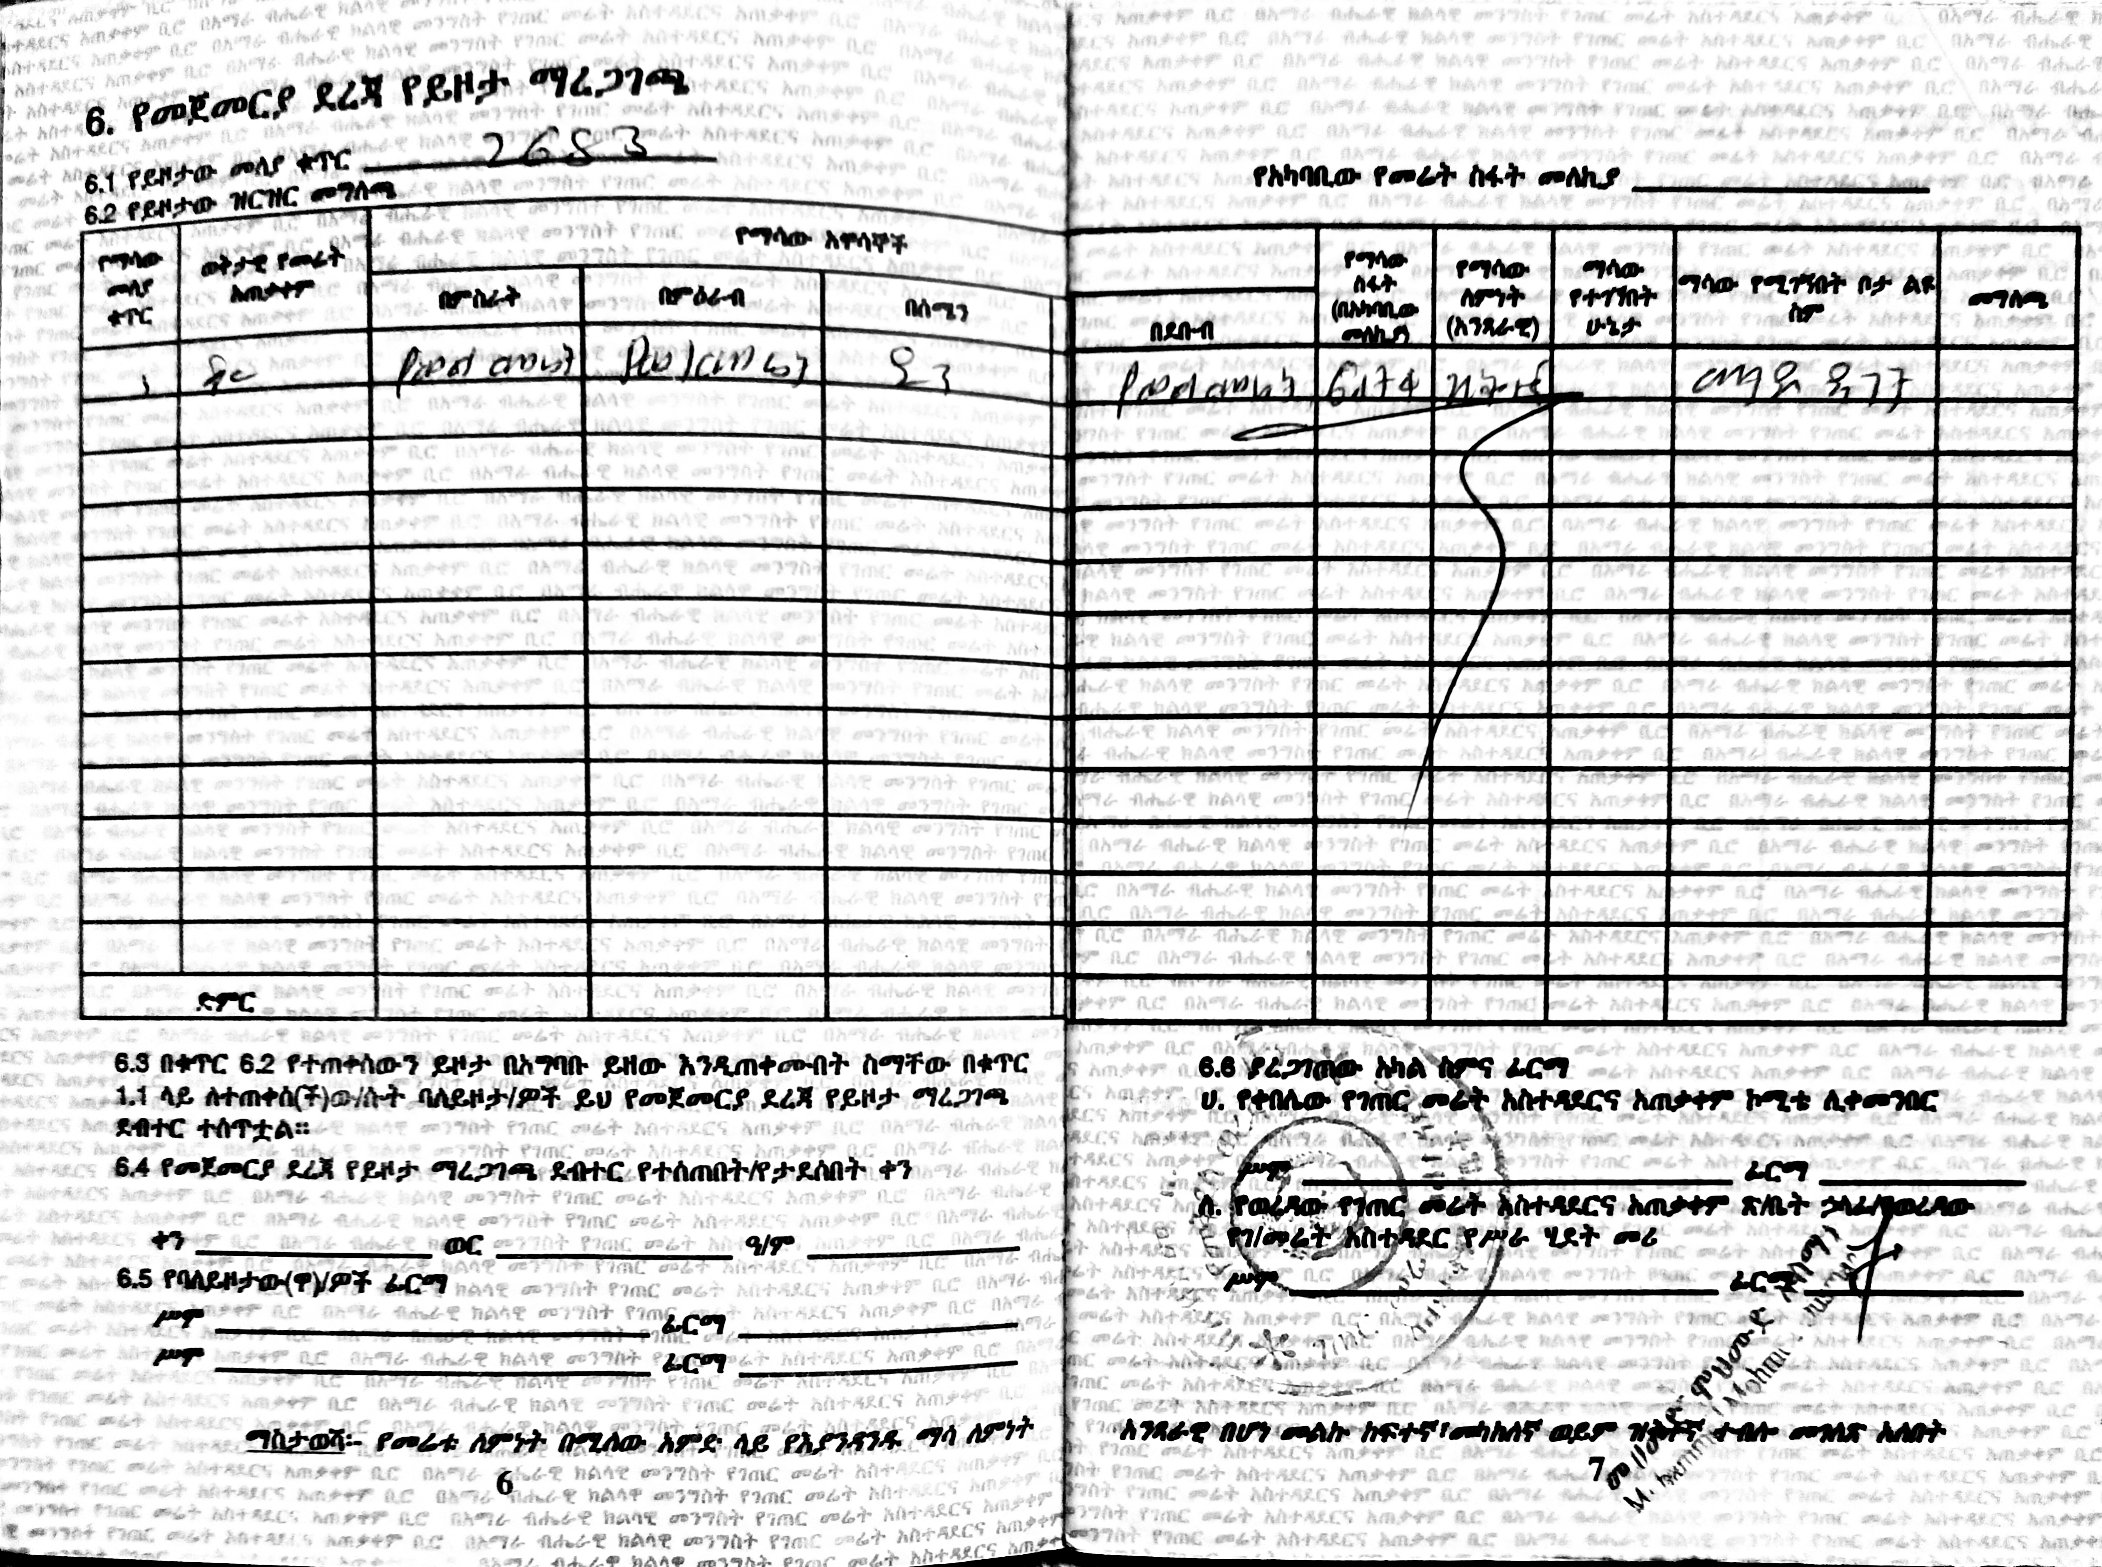 6. የመጀመርያ ደረጃ የይዞታ ማረጋገጫ
6.1 የይዞታው መለያ ቁጥር 2653
6.2 የይዞታው ዝርዝር መግለጫ
የማሳው መለያ ቁጥር
ወቅታዊ የመሬት አጠቃቀም
የማሳው አዋሳኞች
በምስራት
በምዕራብ
በሰሜን
1 የወል መሬት የወል መሬት
ድምር
6.3 በቁጥር 6.2 የተጠቀሰውን ይዞታ በአግባቡ ይዘው እንዲጠቀሙበት ስማቸው በቁጥር
1.1 ላይ ለተጠቀሰ(ች)ው/ሱት ባለይዞታ/ዎች ይህ የመጀመርያ ደረጃ የይዞታ ማረጋገጫ
ደብተር ተሰጥቷል።
6.4 የመጀመርያ ደረጃ የይዞታ ማረጋገጫ ደብተር የተሰጠበት/የታደሰበት ቀን
ቀን ወር ዓ/ም
6.5 የባለይዞታው(ዋ)/ዎች ፊርማ
ሥም ፊርማ
ሥም ፊርማ
ማስታወሻ:- የመሬቱ ለምነት በሚለው አምድ ላይ የእያንዳንዱ ማሳ ለምነት
6
የአካባቢው የመሬት ስፋት መለኪያ
በደቡብ
የማሳው ስፋት (በአካባቢው መለኪያ)
የማሳው ለምነት (አንጻራዊ)
ማሳው የተገኘበት ሁኔታ
ማሳው የሚገኝበት ቦታ ልዩ ስም
መግለጫ
የወል መሬት
6.6 ያረጋገጠው አካል ስምና ፊርማ
ሀ. የቀበሌው የገጠር መሬት አስተዳደርና አጠቃቀም ኮሚቴ ሊቀመንበር
ሥም ፊርማ
ለ. የወረዳው የገጠር መሬት አስተዳደርና አጠቃቀም ጽ/ቤት ኃላፊ/የወረዳው
የገ/መሬት አስተዳደር የሥራ ሂደት መሪ
ሥም ፊርማ
አንጻራዊ በሆነ መልኩ ከፍተኛ፣ መካከለኛ ወይም ዝቅተኛ ተብሎ መገለጽ አለበት
7